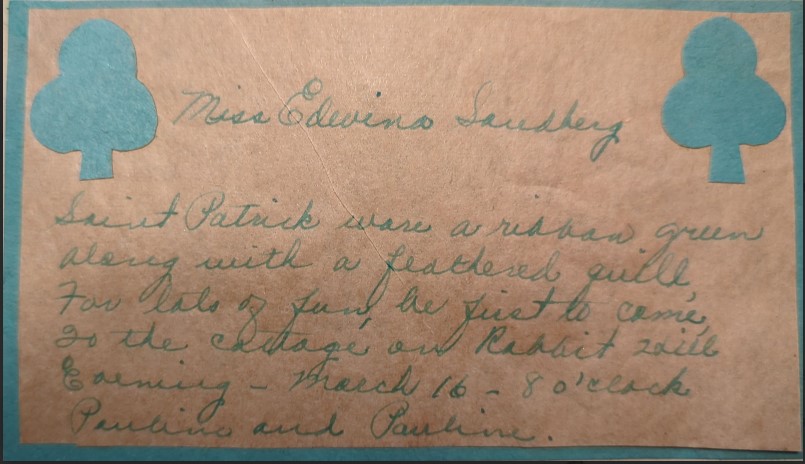 Miss Edwina Sandberg
Saint Patrick wore a ribbon green
along with a feathered quill,
For lots of fun, be first to come,
To the cottage on Rabbit Hill
Evening - March 16 - 8 o'clock
Pauline and Pauline.